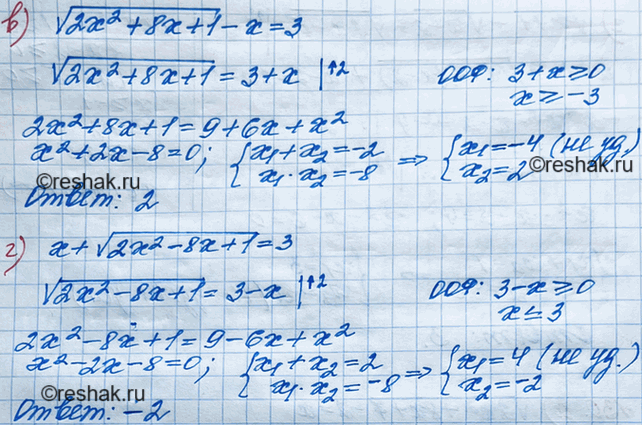 в) √(2x²+8x+1) - x = 3
√(2x²+8x+1) = 3+x |↑2 ООФ: 3+x ≥ 0
x ≥ -3
2x²+8x+1 = 9+6x+x²
x²+2x-8=0; {x₁+x₂=-2 x₁·x₂=-8 ⇒ {x₁=-4 (не уд.) x₂=2
©reshak.ru ©reshak.ru
Ответ: 2
г) x+√(2x²-8x+1) = 3
√(2x²-8x+1) = 3-x |↑2 ООФ: 3-x ≥ 0
x ≤ 3
2x²-8x+1 = 9-6x+x²
x²-2x-8=0; {x₁+x₂=2 x₁·x₂=-8 ⇒ {x₁=4 (не уд.) x₂=-2
©reshak.ru ©reshak.ru
Ответ: -2